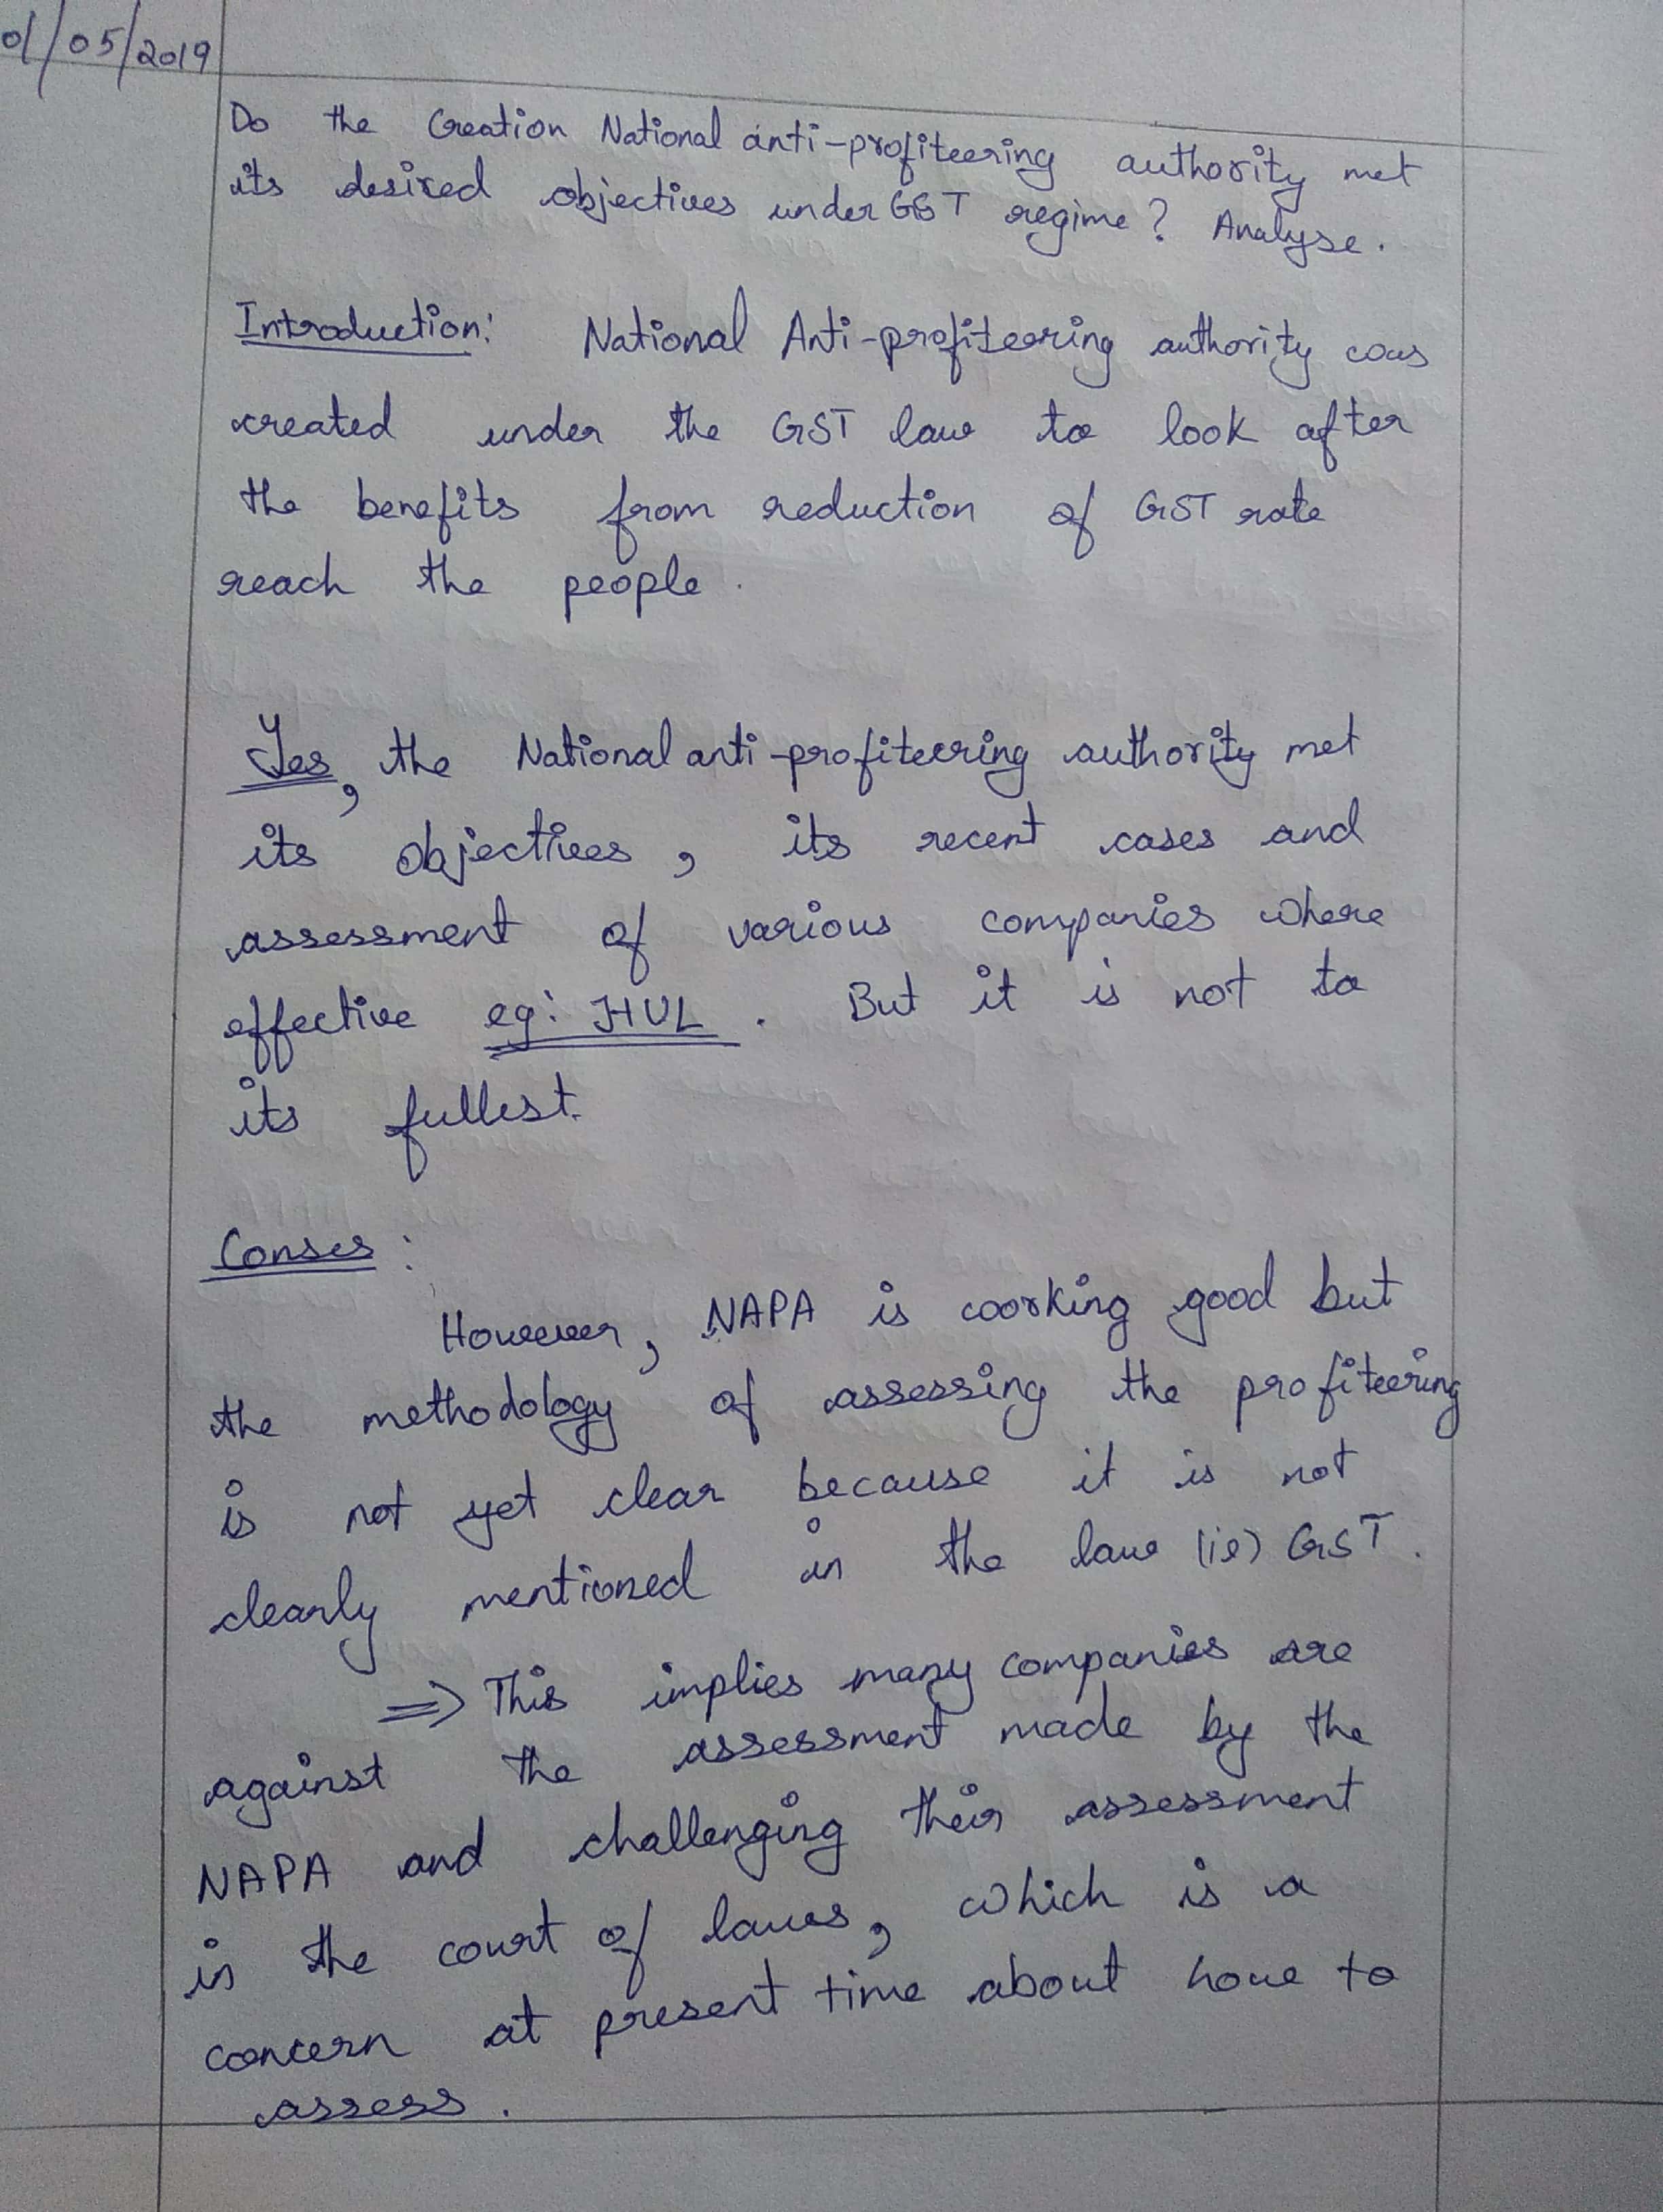 01/05/2019
Do the Creation National anti-profiteering authority met
its desired objectives under GST regime? Analyse.
Introduction: National Anti-profiteering authority was
created under the GST law to look after
the benefits from reduction of GST rate
reach the people.
Yes, the National anti-profiteering authority met
its objectives, its recent cases and
assessment of various companies where
effective eg: HUL. But it is not to
its fullest.
Conses:
However, NAPA is working good but
the methodology of assessing the profiteering
is not yet clear because it is not
clearly mentioned in the law (ie) GST.
⇒ This implies many companies are
against the assessment made by the
NAPA and challenging their assessment
in the court of laws, which is a
concern at present time about how to
assess.